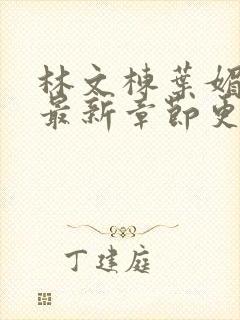 林文栋葉媚
最新章節更
丁建庭